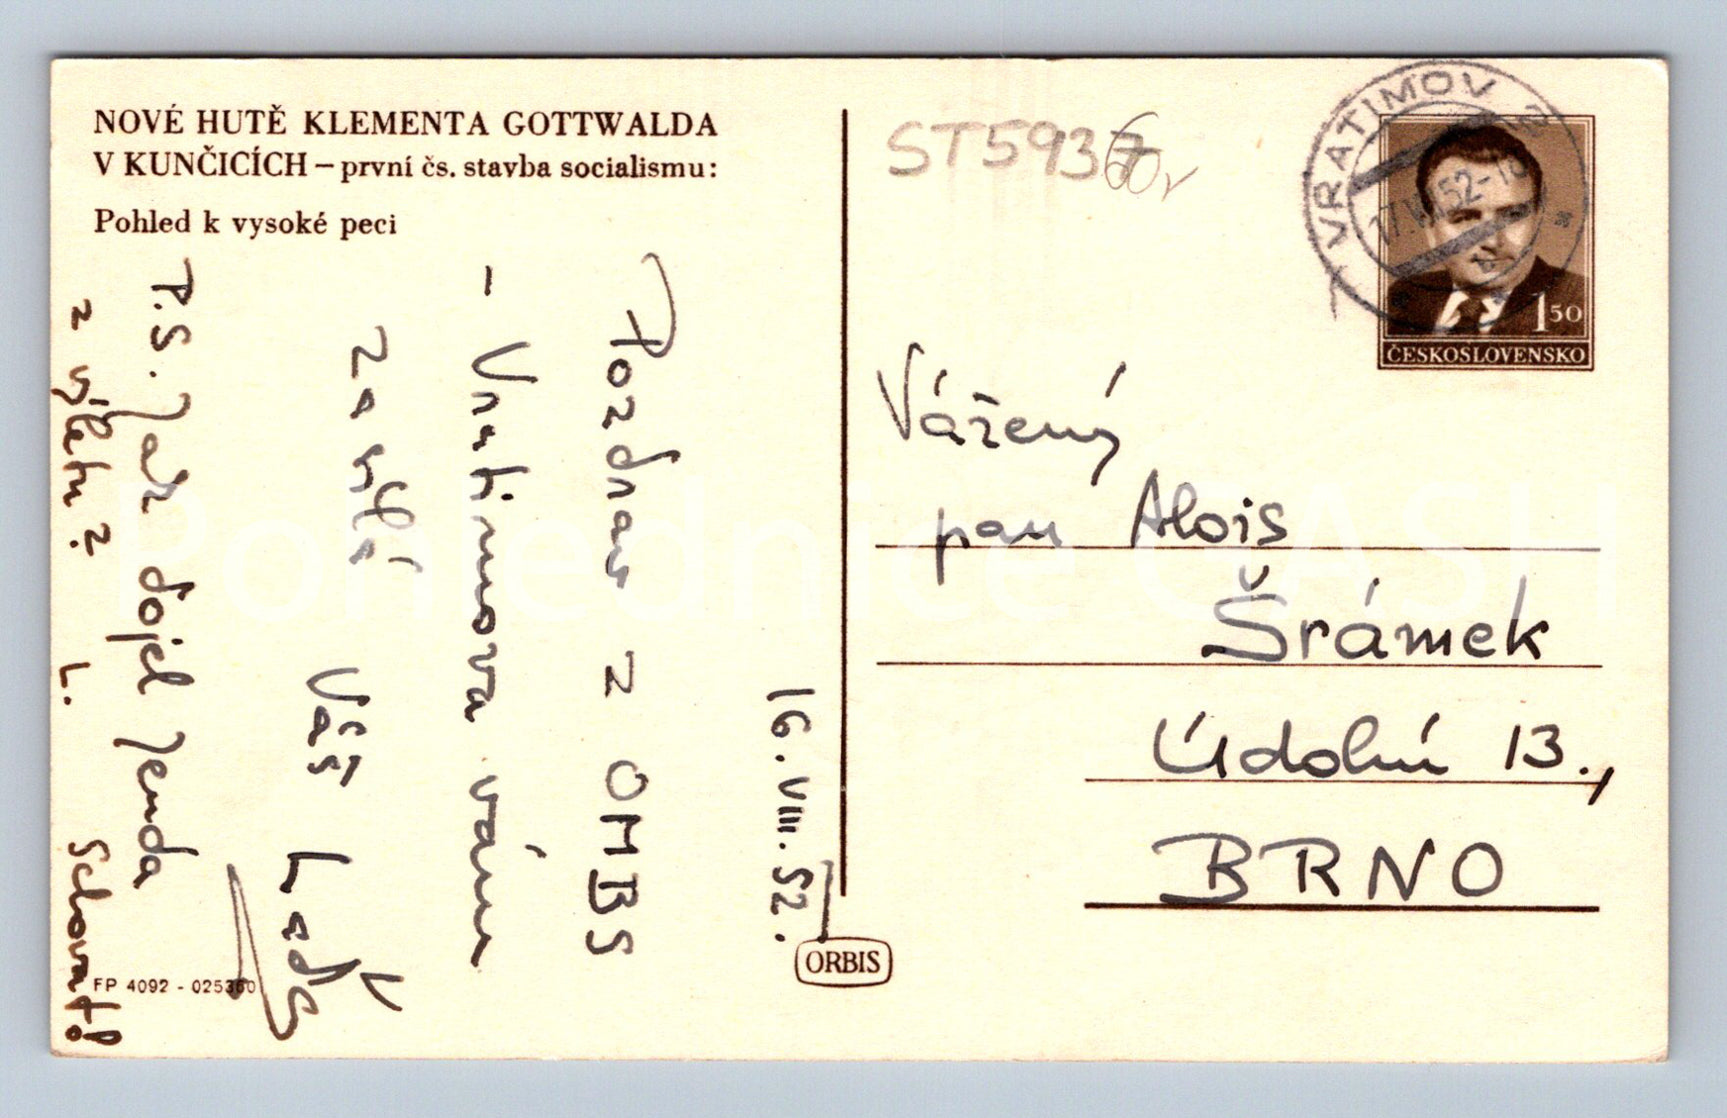 NOVÉ HUTĚ KLEMENTA GOTTWALDA
V KUNČICÍCH – první čs. stavba socialismu:
Pohled k vysoké peci
16. VIII. 52.
Pozdrav z OMBS
- Vratimova vám
zasílá
Váš Laďa
P.S. Jak dojel Jenda
z výletu? L.
Schovat!
FP 4092 - 025360
ORBIS
ST593
VRATIMOV
17.VIII.52-10
1 50
ČESKOSLOVENSKO
Vážený
pan Alois
Šrámek
Údolní 13.,
BRNO
Pohlednice CASH